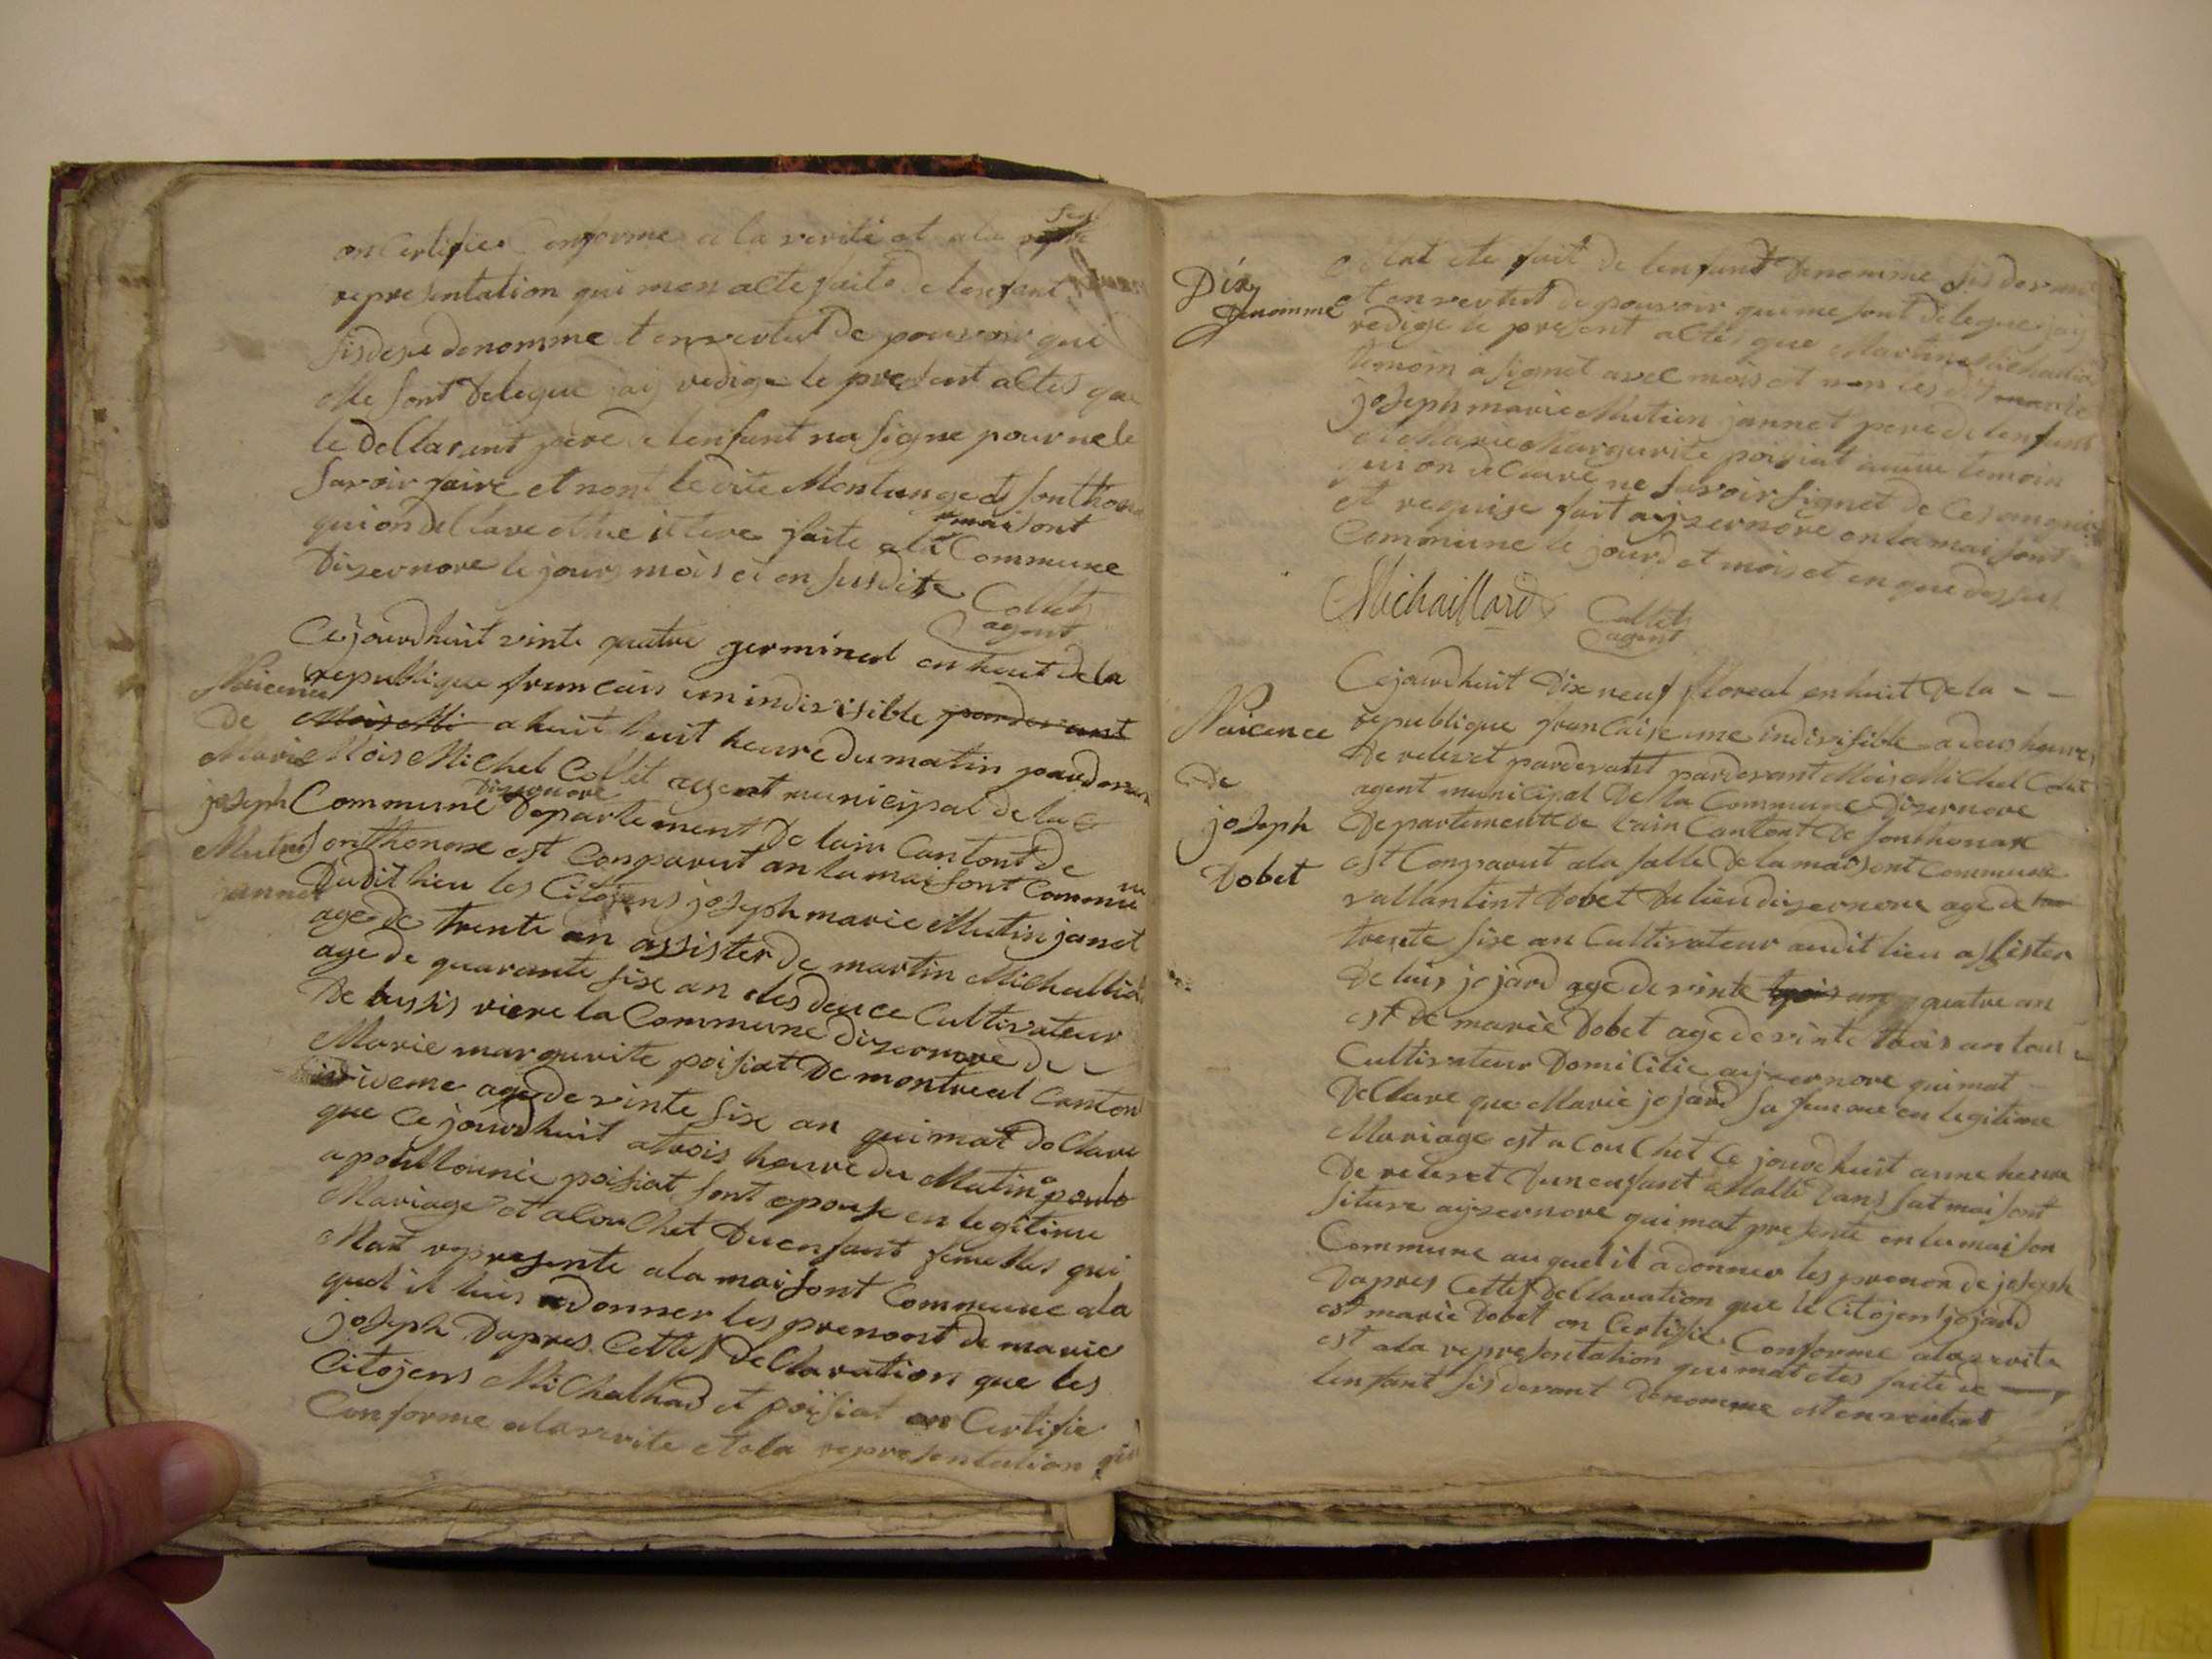 on Certifier Conforme a la verite et ala
representation qui mon alte faite de lenfant
sisdesu denomme t en vertut De pouvoir qui
Me sont Delegue jaij redige le present altes que
le dellarent pere de lenfant na signe pour ne le
savoir faire et non
qui on dellare ettre faite ala maisont Commune
Dizernore le jours mois et en susdite
Collet
agent
Ce jourdhuit vinte quatre germinal en huit de la
republique francais un indivisible pardevant
a huit huit heure du matin pardevan
Mois Michel Collet agent municipal de la
Commune Dizernore Departement De lain Cantont De
Sonthonax est Conparut an la maisont Commune
Dudit lieu les Citojens joseph marie Mutin janet
age de trente an assister de martin Michallia
age de quarante sixe an des deuce Cultivateur
De bussis viere la Commune dizernore de
Marie margurite poisiat De montreal Canton
ideme age de vinte sixe an qui mat dellare
que ce jourdhuit atrois heure du Matin
apoullounie poisiat sont epouse en legitime
Mariage et alouchet Du enfant femelles qui
Mat represente ala maisont Commune ala
quel il luis adonner les prenont de marie
joseph Dapres Cettes dellaration que les
Citojens Michalliad et poisiat on Certifie
Conforme ala verite et ala representation qui
Naicence
De
Marie
joseph
Mutin
jannet
Mat ete fait de lenfant denomme sis devant
et en vertut de pouvoir qui me sont delegue jaij
redige le present altes que Martin Michallia
temoin a signet avec mois et non ces dit marie
joseph marie Mutien jannet pere de lenfant
et Marie Margurite poisiat autre temoin
qui on dellare ne savoir signet de Ces enqui
et requise fait ayzernore en la maisont
Commune le jourd et mois et en que dessus
Dix
denomme
Michaillard
Collet
agent
Ce jourdhuit Dixe neuf floreal en huit De la
republique francaise une indivisible a deus heures
De relevet pardevant pardevant Mois Michel Collet
agent municipal De la Commune dizernore
Departemente de lain Cantont De sonthonax
est Conparut ala salle De la maisont Commune
vallantint Dobet De lieu dizernore age de
trente sixe an Cultivateur audit lieu assister
De luis jojard age de vinte trois an quatre an
est De marie Dobet age de vinte trois an tous
Cultivateur Domicilie ayzernore qui mat
Dellare que Marie jojard sa femme en legitime
Mariage est alouchet Ce jourdhuit a une heure
De relevet Dun enfant Malle Dans sat maisont
siture ayzernore qui mat presente en la maison
Commune au quel il a donner les prenon de joseph
Dapres Cettes Dellaration que le Citojen jojard
est marie Dobet on Certifie Conforme ala verite
est ala representation qui mat etes faite de
lenfant sis devant denomme est en vertut
Naicence
De
joseph
Dobet